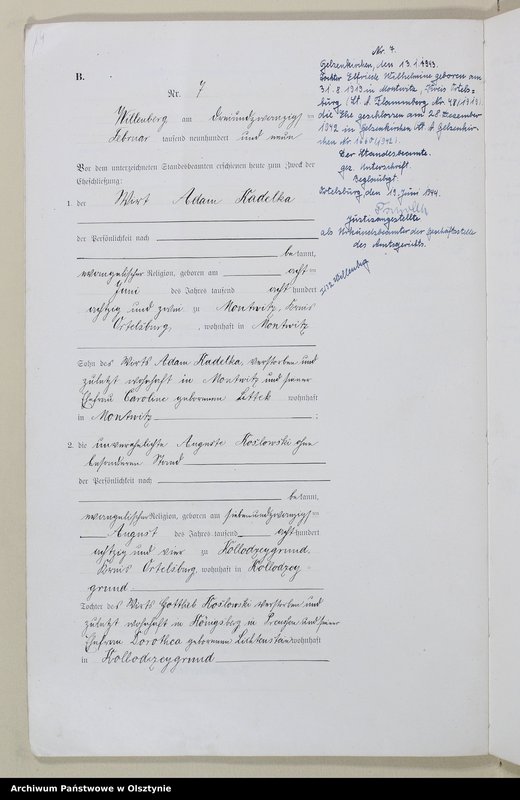 B.
Nr. 7
Willenberg am dreiundzwanzigsten
Februar tausend neunhundert und neun
Vor dem unterzeichneten Standesbeamten erschienen heute zum Zweck der
Eheschließung:
1. der Wirt Adam Kadelka
der Persönlichkeit nach
bekannt,
evangelischer Religion, geboren am achten
Juni des Jahres tausend acht hundert
achtzig und zwei zu Montwitz, Kreis
Ortelsburg, wohnhaft in Montwitz
Sohn des Wirts Adam Kadelka, verstorben und
zuletzt wohnhaft in Montwitz und seiner
Ehefrau Caroline geborenen Littek wohnhaft
in Montwitz ;
2. die unverehelichte Auguste Koslowski ohne
besonderen Stand
der Persönlichkeit nach
bekannt,
evangelischer Religion, geboren am siebenundzwanzigsten
August des Jahres tausend acht hundert
achtzig und vier zu Kollodzeygrund,
Kreis Ortelsburg, wohnhaft in Kollodzey-
grund
Tochter des Wirts Gottlieb Koslowski verstorben und
zuletzt wohnhaft in Königsberg in Preußen und seiner
Ehefrau Dorothea geborenen wohnhaft
in Kollodzeygrund
Nr. 7
Gelsenkirchen, den 13.1.1943.
Tochter Elfriede Wilhelmine geboren am
31.8.1919 in Montwitz, Kreis Ortels-
burg (St. A. Nr. 48/1919).
die Ehe geschlossen am 28. Dezember
1942 in Gelsenkirchen St. A Gelsenkir-
chen Nr. 1660/1942).
Der Standesbeamte.
gez. Unterschrift.
Beglaubigt.
Ortelsburg, den 13. Juni 1944.
Justizangestellte
als Urkundsbeamter der Geschäftsstelle
des Amtsgerichts.
Willenberg
Archiwum Państwowe w Olsztynie